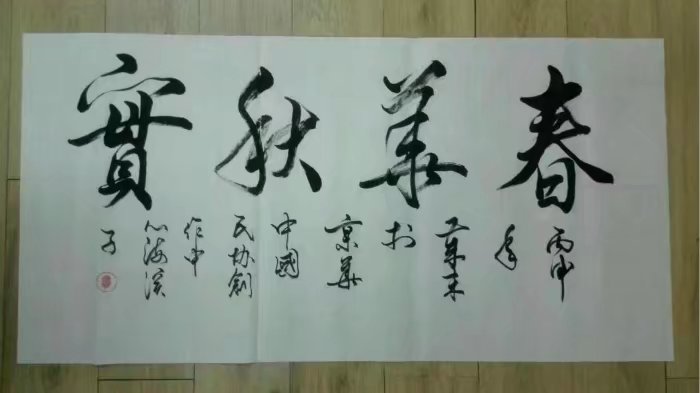 春華秋實
丙申
年
末
於
京華
中國
民協創
作中
心海
子